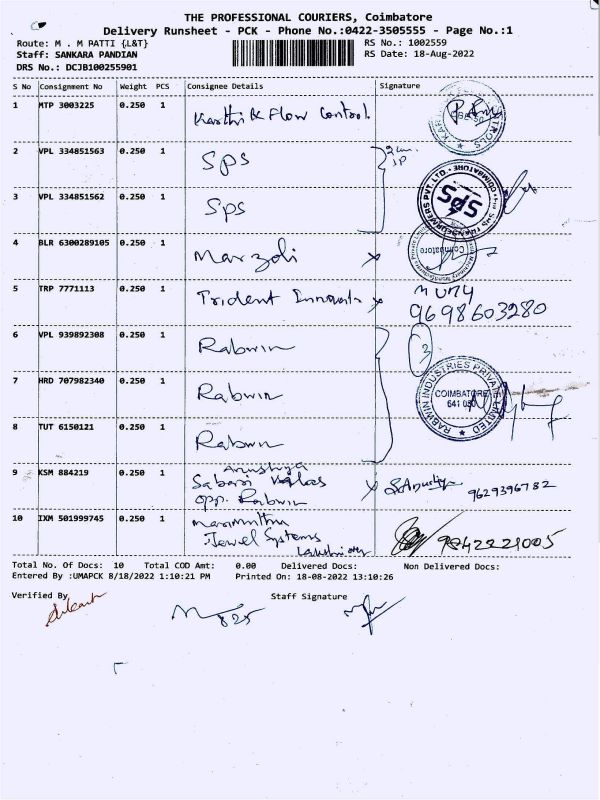 THE PROFESSIONAL COURIERS, Coimbatore
Delivery Runsheet - PCK - Phone No.:0422-3505555 - Page No.:1
Route: M . M PATTI {L&T}
RS No.: 1002559
Staff: SANKARA PANDIAN
RS Date: 18-Aug-2022
DRS No.: DCJB100255901
S No Consignment No Weight PCS Consignee Details Signature
1 MTP 3003225 0.250 1 Karthik Flow Control
2 VPL 334851563 0.250 1 Sps
3 VPL 334851562 0.250 1 Sps
SPS
COIMBATORE
4 BLR 6300289105 0.250 1 Marzoli
Coimbatore
5 TRP 7771113 0.250 1 Trident
9698603280
6 VPL 939892308 0.250 1 Rabwin
3
7 HRD 707982340 0.250 1 Rabwin
RABWIN INDUSTRIES PRIVATE LIMITED
COIMBATORE
641 050
8 TUT 6150121 0.250 1 Rabwin
9 KSM 884219 0.250 1
opp. Rabwin
9629396782
10 IXM 501999745 0.250 1
Jewel Systems
9842221005
Total No. Of Docs: 10 Total COD Amt: 0.00 Delivered Docs: Non Delivered Docs:
Entered By :UMAPCK 8/18/2022 1:10:21 PM Printed On: 18-08-2022 13:10:26
Verified By
Staff Signature